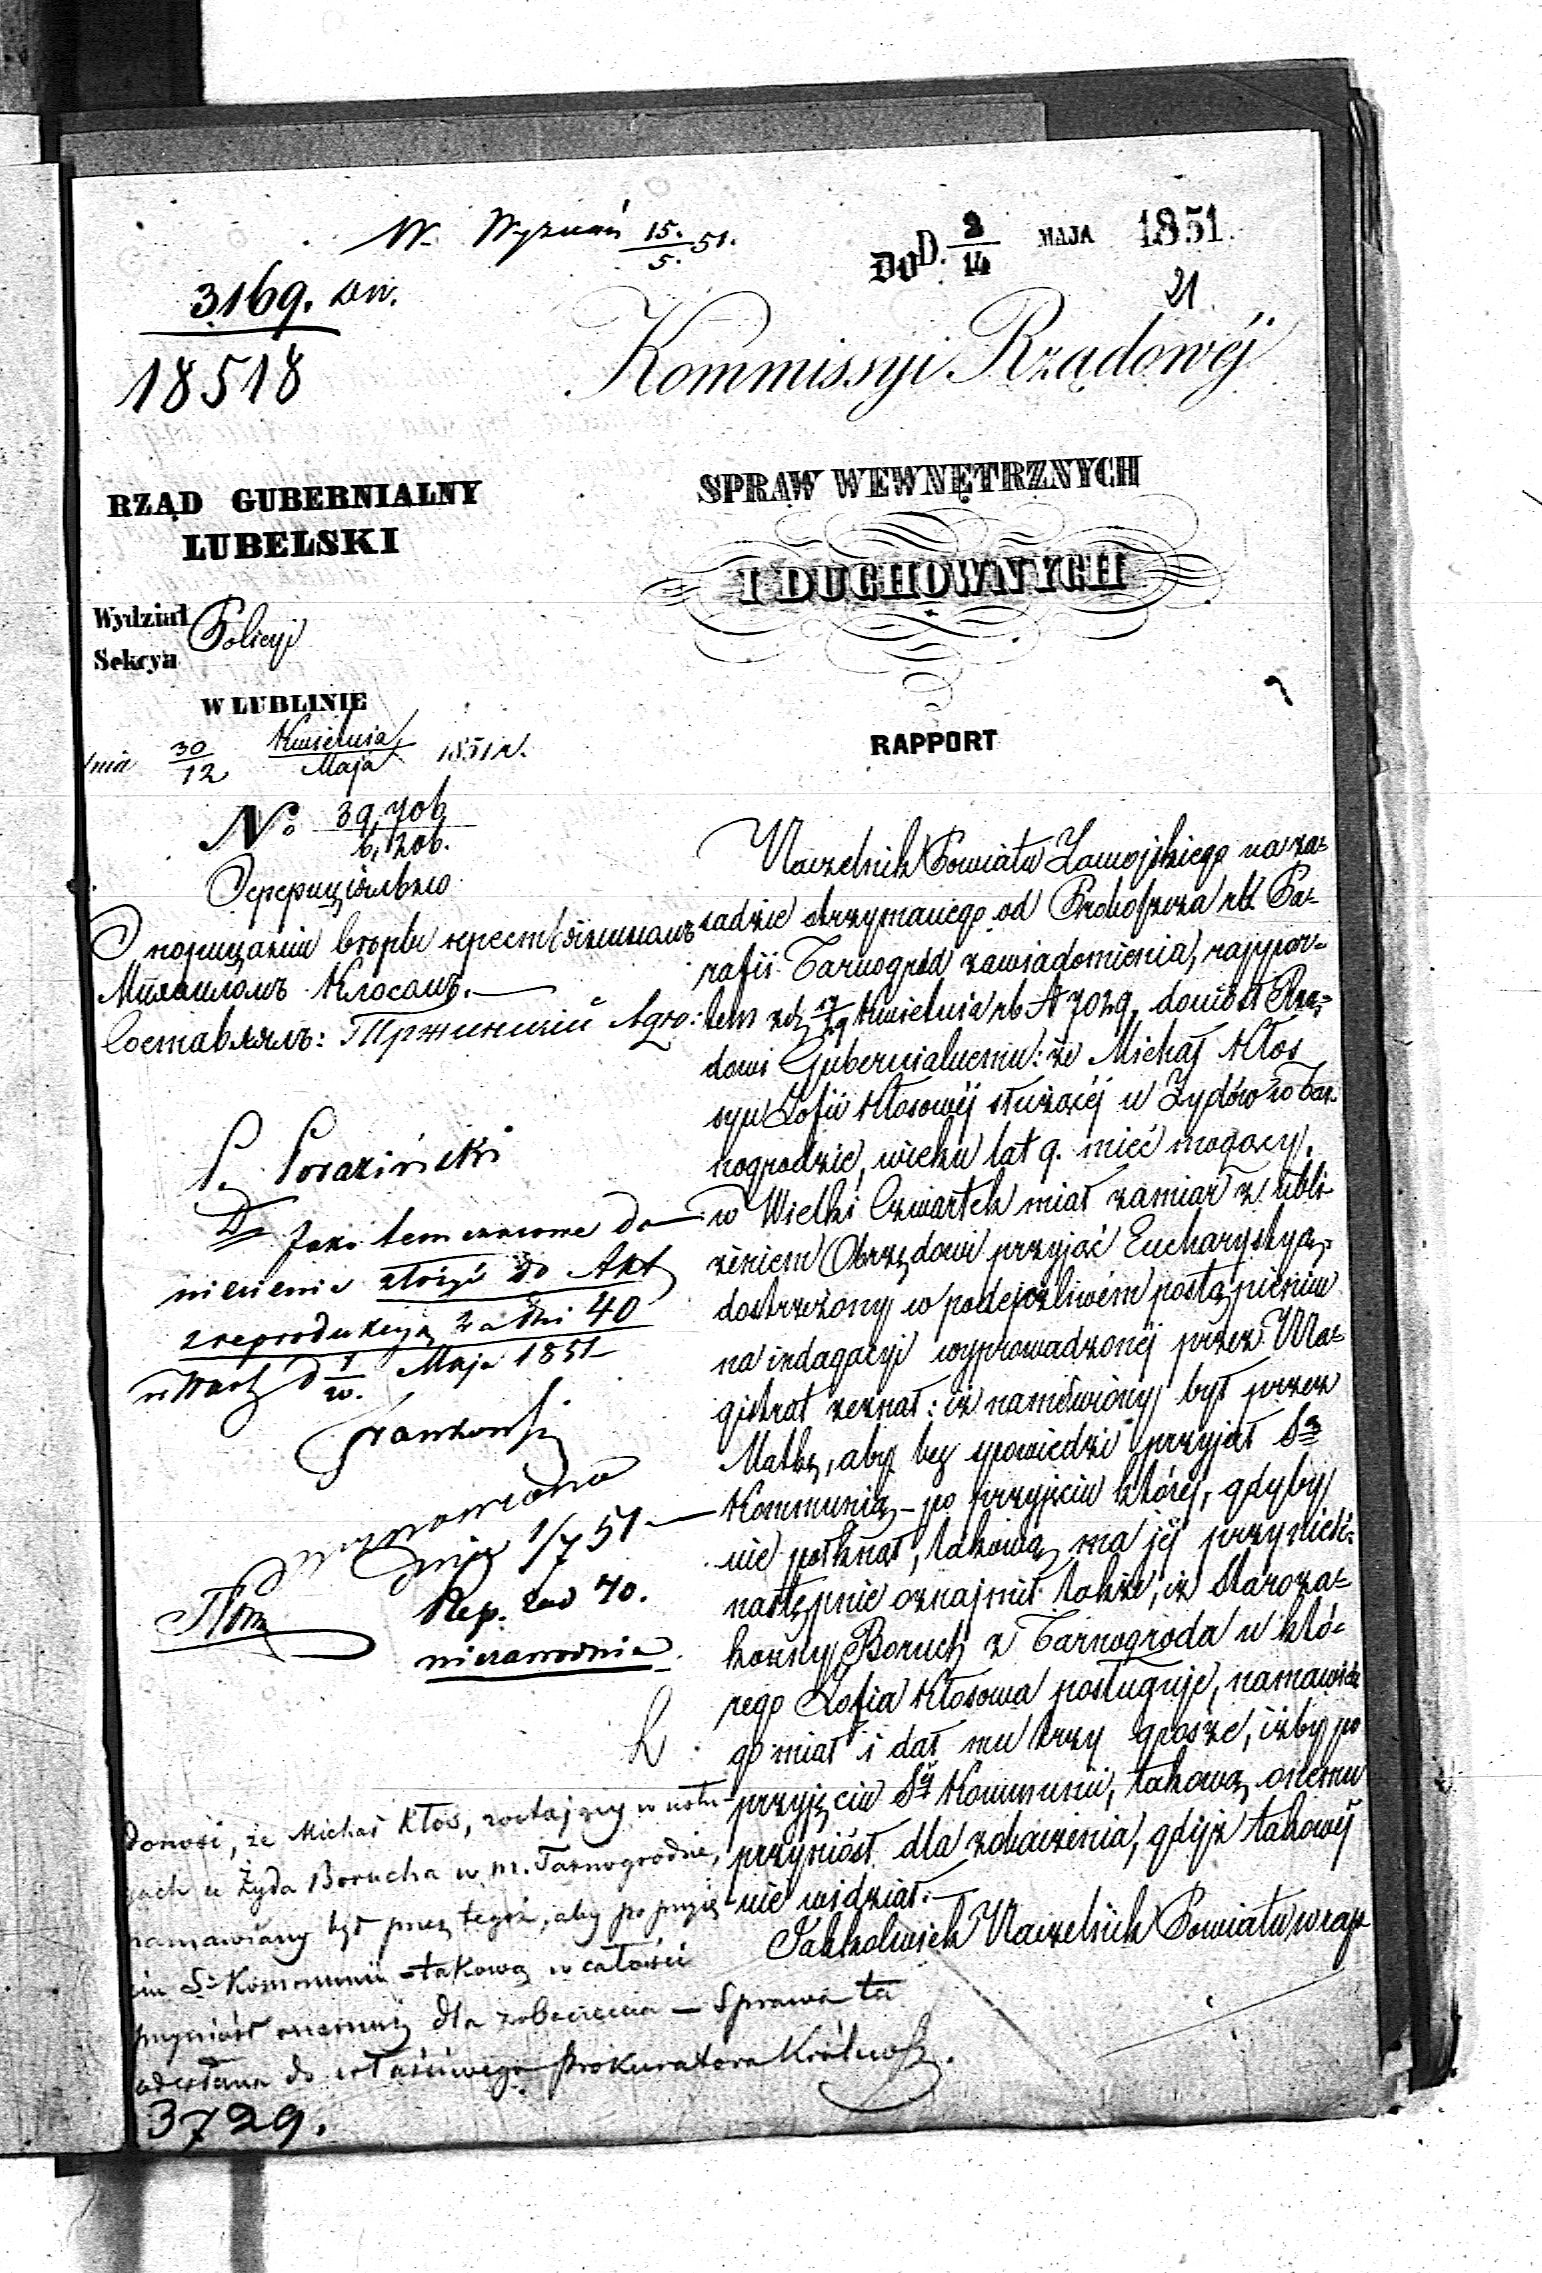 W. Wyznań 15./5. 51.
DOD. 2/14 MAJA 1851.
21
3169. wn.
18518
Kommissyi Rządowéj
SPRAW WEWNĘTRZNYCH
I DUCHOWNYCH
RAPPORT
RZĄD GUBERNIALNY
LUBELSKI
Wydział Policyi
Sekcya
W LUBLINIE
dnia 30/12 Kwietnia/Maja 1851 r.
No. 39,706/6,206.
О порицаніи вѣры крестьяниномъ
Михаиломъ Клосомъ.
Составлялъ:
Naczelnik Powiatu Zamojskiego na za-
sadzie otrzymanego od Proboszcza rk Pa-
rafii Tarnogród zawiadomienia, rappor-
tem z d. 17/29 Kwietnia rb N 7029, doniósł Rzą-
dowi Gubernialnemu: że Michał Kłos
syn Zofii Kłosowéj służącéj u Żydów w Tar-
nogrodzie, wieku lat 9. mieć mogący,
w Wielki Czwartek miał zamiar z ubli-
żeniem Obrzędowi przyjąć Eucharystyą,
dostrzeżony w podejrzliwém postąpieniu
na indagacyi wyprowadzonéj przez Ma-
gistrat zeznał: iż namówiony był przez
Matkę, aby bez spowiedzi przyjął Są
Kommunią – po przyjęciu któréj, gdyby
nie połknął, takową ma jéj przynieść;
następnie oznajmił także, iż Staroza-
konny Boruch z Tarnogroda u któ-
rego Zofia Kłosowa posługuje, namawiać
go miał i dał mu trzy grosze, iżby po
przyjęciu Séj Kommunii, takową onemu
przyniósł dla zobaczenia, gdyż takowéj
nie widział.–
Jakkolwiek Naczelnik Powiatu w rap
P.
Jako tymczasowe do-
niesienie złożyć do Akt
z reprodukcyą za dni 40
w Warsz d 1/ Maja 1851
dnia 1/7 51
Rep. za d 40.
niezawodnie
Donosi, że Michał Kłos, zostający w usłu-
gach u Żyda Borucha w m. Tarnogrodzie,
namawiany był przez tegoż, aby po przyję-
ciu Sej Kommunii takową w całości
przyniósł onemuż dla zobaczenia – Sprawa ta
odesłana do właściwego Prokuratora Królews.
3729.